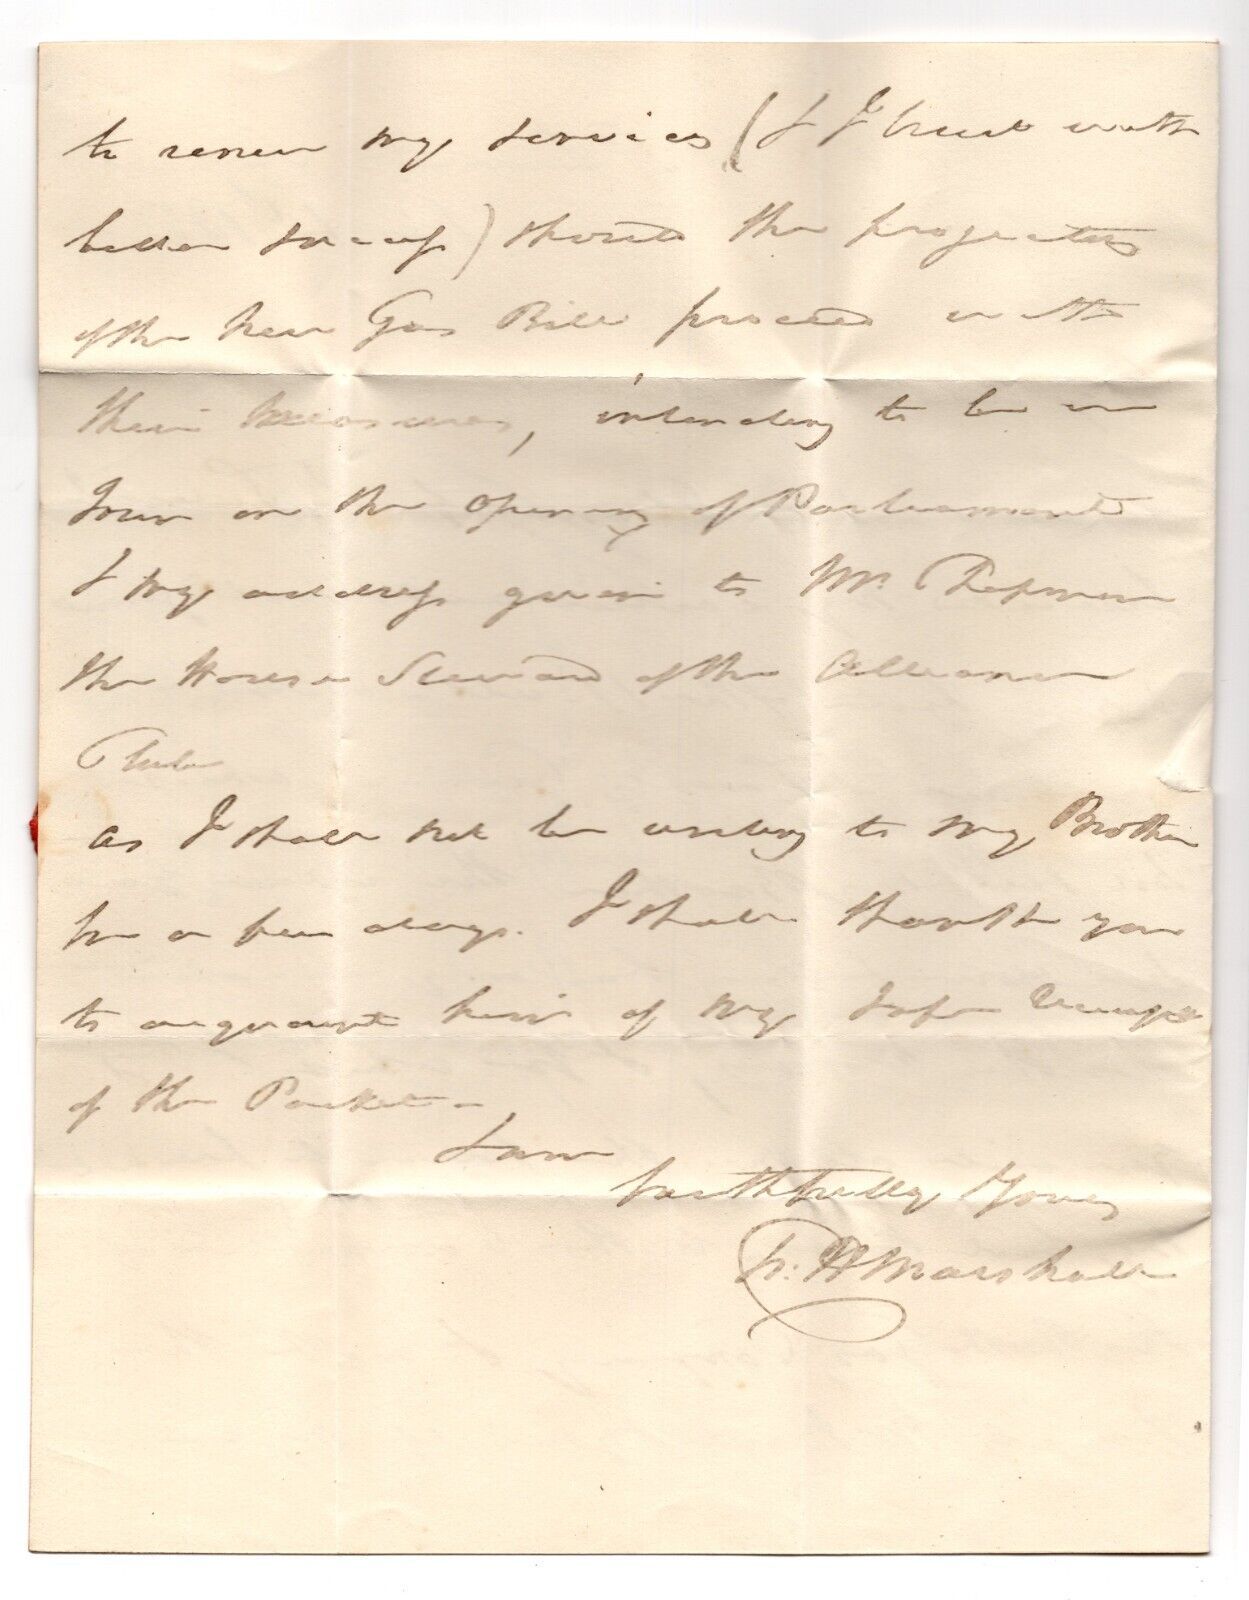 to renew my services (& I trust with
better success) should the projectors
of the New Gas Bill proceed with
their measures, intending to be in
Town on the opening of Parliament
& my address given to Mr. Chapman
the House Steward of the Alliance
Club
As I shall not be writing to my Brother
for a few days. I shall thank you
to acquaint him of my safe
of the Packet –
I am
faithfully Yours
H Marshall